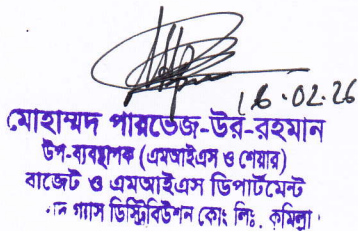 16.02.26
মোহাম্মদ পারভেজ-উর-রহমান
উপ-ব্যবস্থাপক (এমআইএস ও শেয়ার)
বাজেট ও এমআইএস ডিপার্টমেন্ট
গ্যাস ডিস্ট্রিবিউশন কোং লিঃ, কুমিল্লা